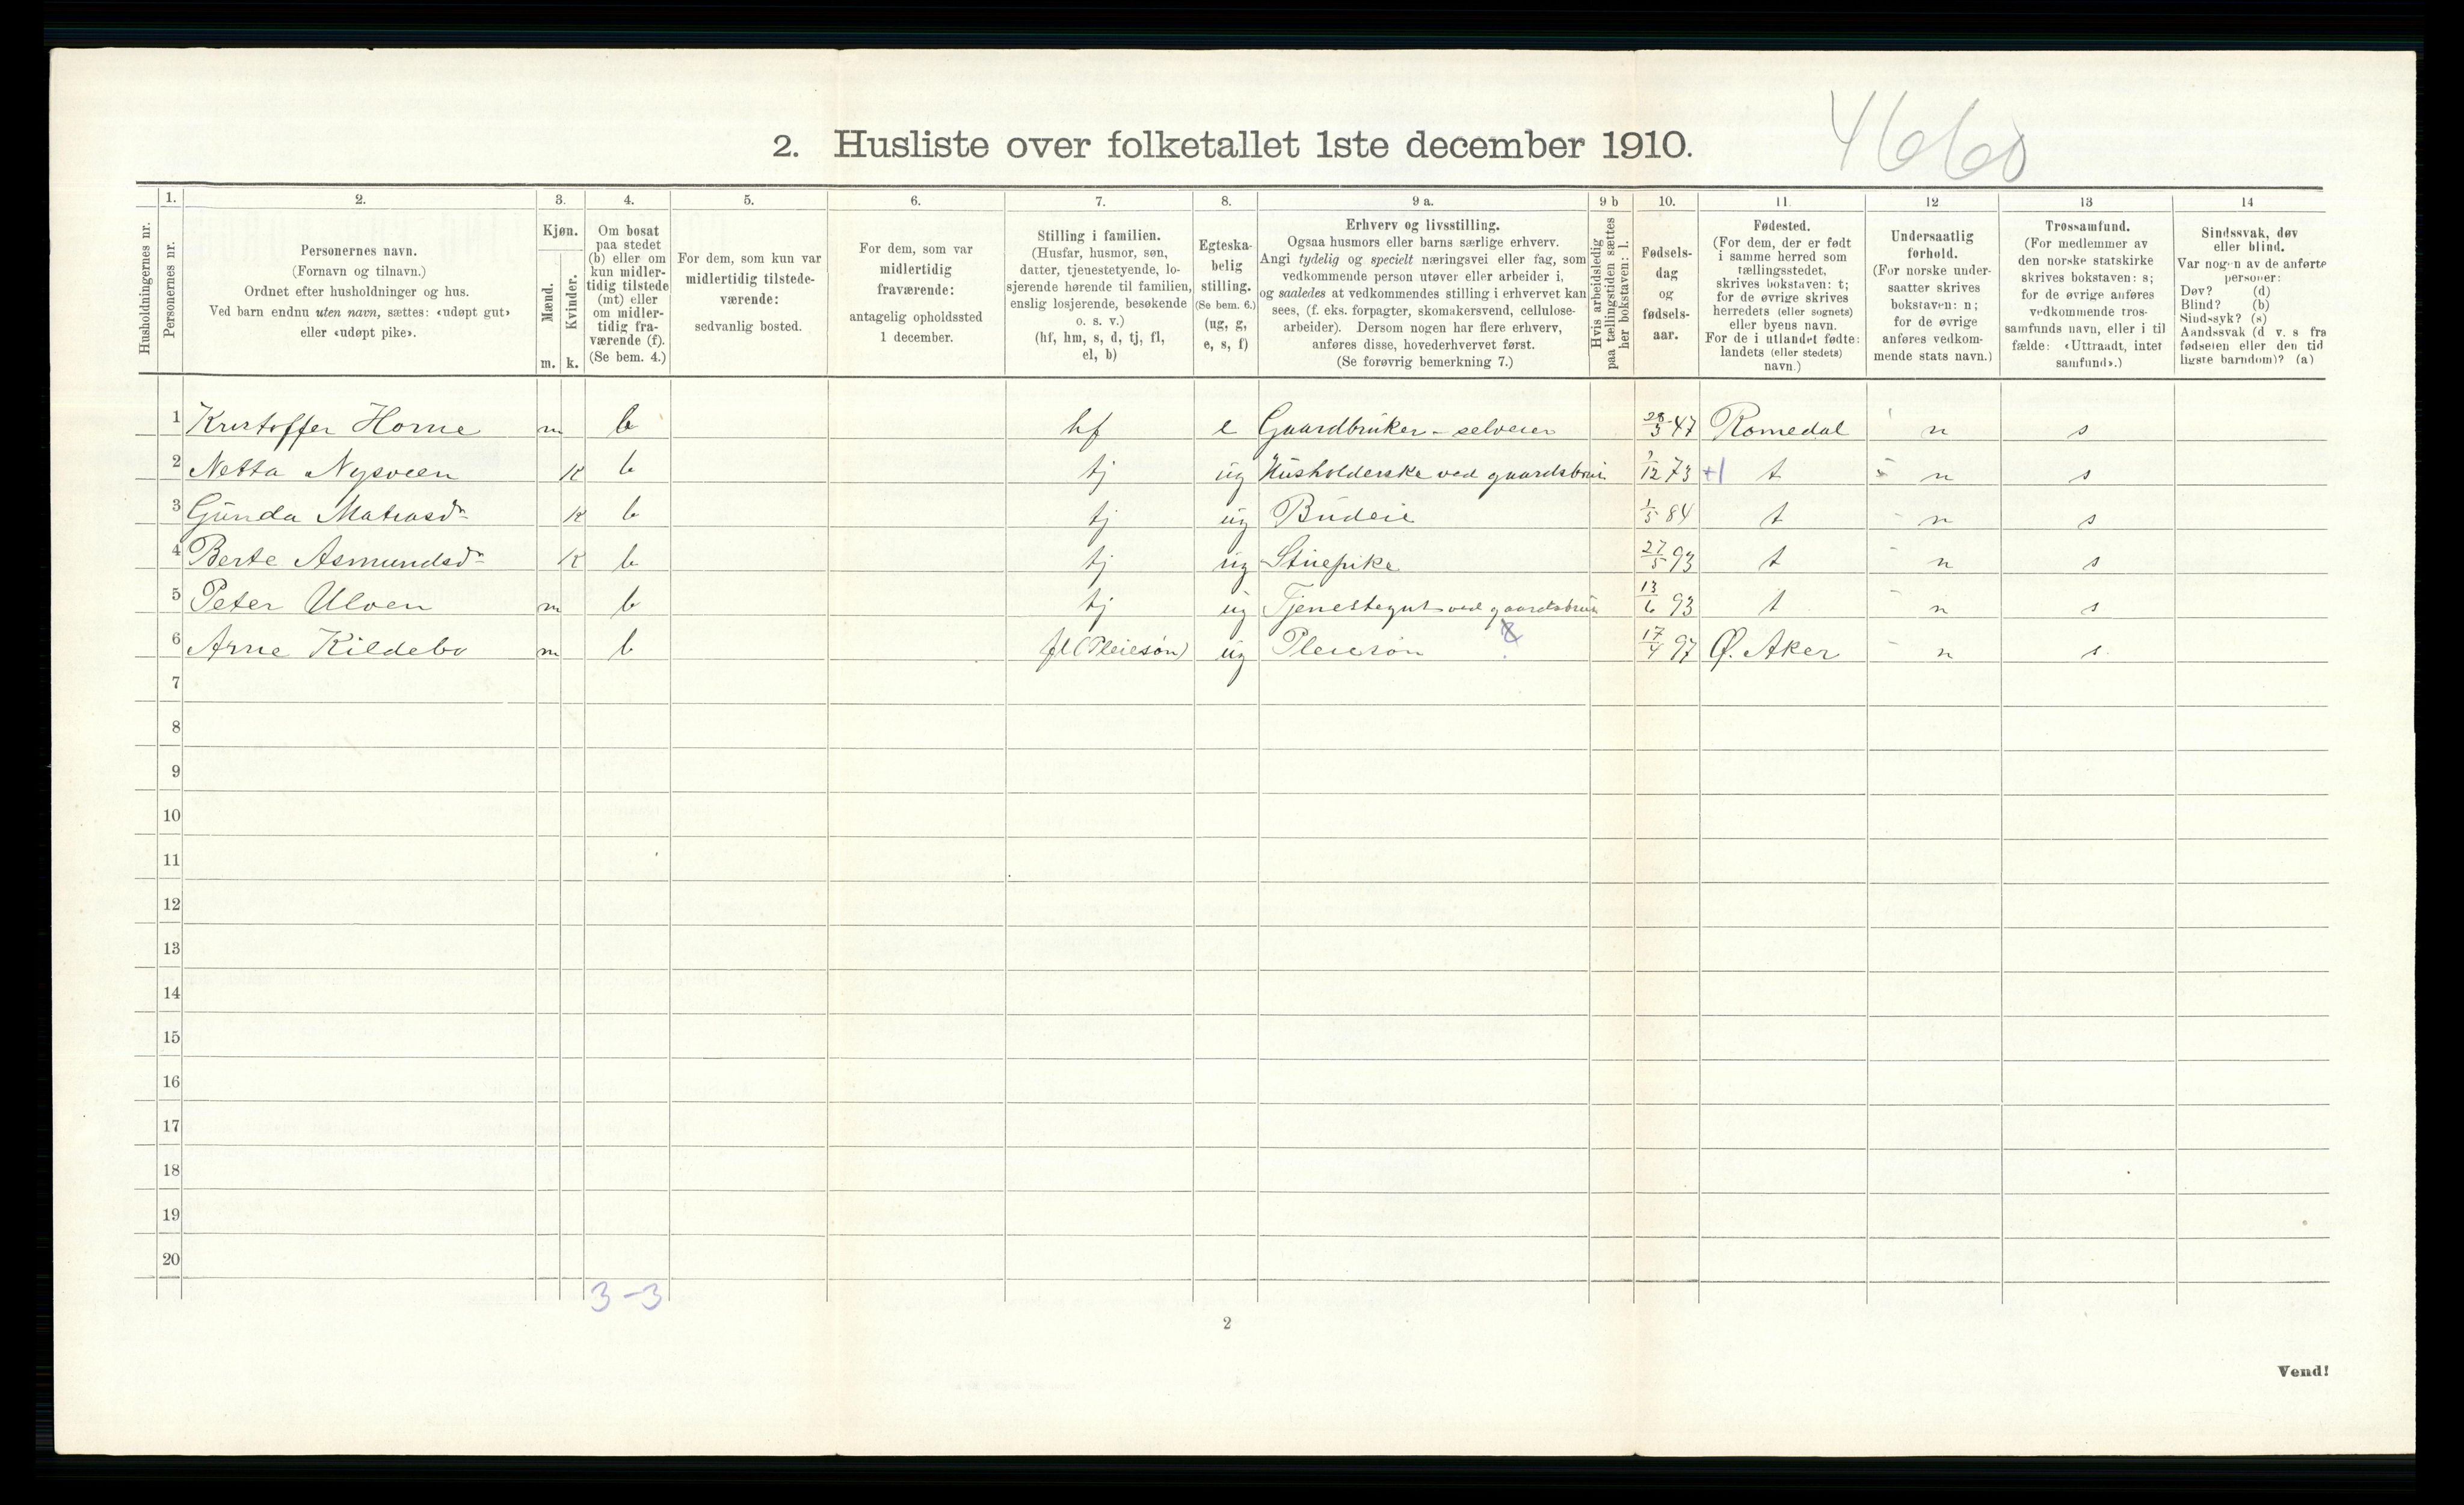 4660
2. Husliste over folketallet 1ste december 1910.
1. 2. 3. 4. 5. 6. 7. 8. 9 a. 9 b 10. 11. 12 13 14
Husholdningernes nr.
Personernes nr.
Personernes navn.
(Fornavn og tilnavn.)
Ordnet efter husholdninger og hus.
Ved barn endnu uten navn, sættes: «udøpt gut»
eller «udøpt pike».
Kjøn.
Mænd.
m.
Kvinder.
k.
Om bosat
paa stedet
(b) eller om
kun midler-
tidig tilstede
(mt) eller
om midler-
tidig fra-
værende (f).
(Se bem. 4.)
For dem, som kun var
midlertidig tilstede-
værende:
sedvanlig bosted.
For dem, som var
midlertidig
fraværende:
antagelig opholdssted
1 december.
Stilling i familien.
(Husfar, husmor, søn,
datter, tjenestetyende, lo-
sjerende hørende til familien,
enslig losjerende, besøkende
o. s. v.)
(hf, hm, s, d, tj, fl,
el, b)
Egteska-
belig
stilling.
(Se bem. 6.)
(ug, g,
e, s, f)
Erhverv og livsstilling.
Ogsaa husmors eller barns særlige erhverv.
Angi tydelig og specielt næringsvei eller fag, som
vedkommende person utøver eller arbeider i,
og saaledes at vedkommendes stilling i erhvervet kan
sees, (f. eks. forpagter, skomakersvend, cellulose-
arbeider). Dersom nogen har flere erhverv,
anføres disse, hovederhvervet først.
(Se forøvrig bemerkning 7.)
Hvis arbeidsledig
paa tællingstiden sættes
her bokstaven: l.
Fødsels-
dag
og
fødsels-
aar.
Fødested.
(For dem, der er født
i samme herred som
tællingsstedet,
skrives bokstaven: t;
for de øvrige skrives
herredets (eller sognets)
eller byens navn.
For de i utlandet fødte:
landets (eller stedets)
navn.)
Undersaatlig
forhold.
(For norske under-
saatter skrives
bokstaven: n;
for de øvrige
anføres vedkom-
mende stats navn.)
Trossamfund.
(For medlemmer av
den norske statskirke
skrives bokstaven: s;
for de øvrige anføres
vedkommende tros-
samfunds navn, eller i til
fælde: «Uttraadt, intet
samfund».)
Sindssvak, døv
eller blind.
Var nogen av de anførte
personer:
Døv? (d)
Blind? (b)
Sindssyk? (s)
Aandssvak (d v. s fra
fødselen eller den tid
ligste barndom)? (a)
1 Kristoffer Horne m b hf e Gaardbruker - selveier 28/3 47 Romedal n s
2 Netta Nysveen K b tj ug Husholderske ved gaardsbruk 9/12 73 +1 t n s
3 Gunda Matiasdn K b tj ug Budeie 1/5 84 t n s
4 Berte Asmundsdn K b tj ug Stuepike 27/5 93 t n s
5 Peter Ulven m b tj ug Tjenestegut ved gaardsbruk 13/6 93 t n s
6 Arne Kildebo m b fl (Pleiesøn) ug Pleiesøn 17/4 97 Ø. Aker n s
7
8
9
10
11
12
13
14
15
16
17
18
19
20
3-3
2
Vend!